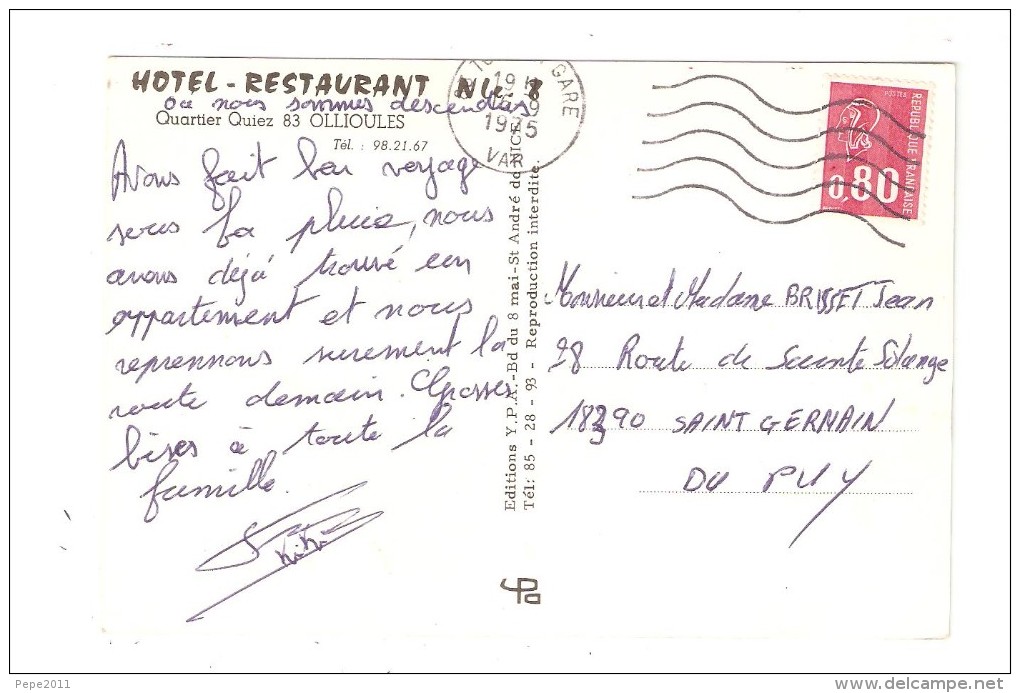 HOTEL - RESTAURANT Nº 8
où nous sommes descendus
Quartier Quiez 83 OLLIOULES
Tél. : 98.21.67
Avons fait bon voyage
sous la pluie, nous
avons déjà trouvé un
appartement et nous
reprennons surement la
route demain. Grosses
bises à toute la
famille.
Editions Y.P.A.-Bd du 8 mai-St André de NICE
Tél: 85 - 28 - 93 - Reproduction interdite.
GARE
19 H
9
1975
VAR
POSTES
REPUBLIQUE FRANÇAISE
0,80
Monsieur et Madame BRISSET Jean
28 Route de Sainte Solange
18390 SAINT GERMAIN
DU PUY
Pepe2011
delcampe.net